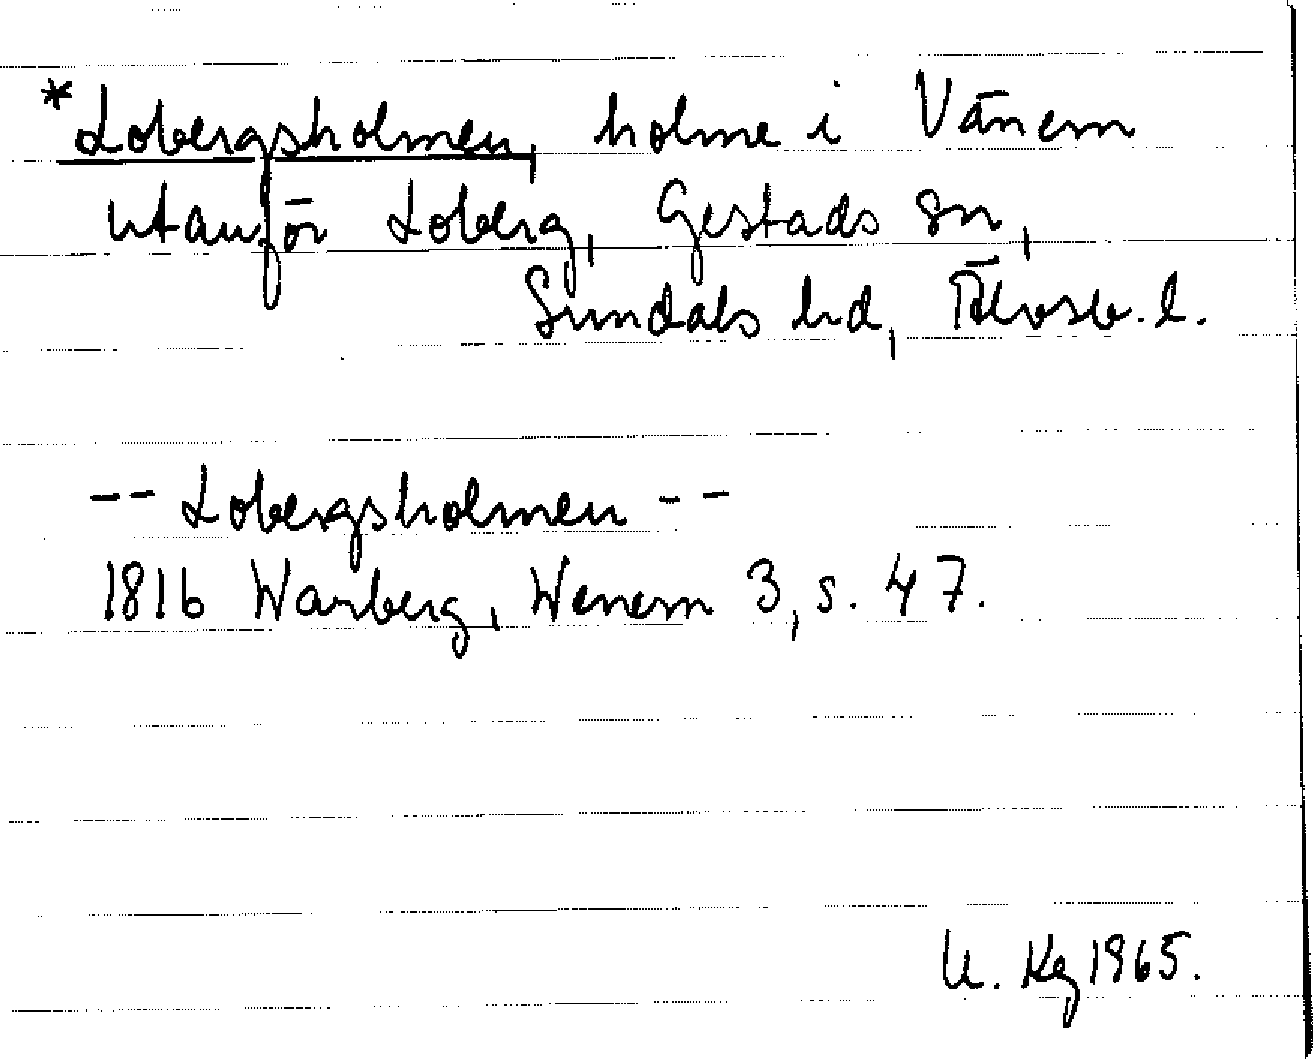 *Lobergsholmen, holme i Vänern
utanför Loberg, Gestads sn,
Sundals hd, Älvsb. l.
-- Lobergsholmen --
1816 Warberg, Wenern 3, s. 47.
U. Kg 1965.